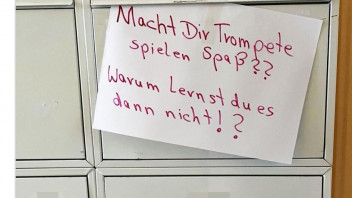 Macht Dir Trompete
spielen Spaß??
Warum Lernst du es
dann nicht!?